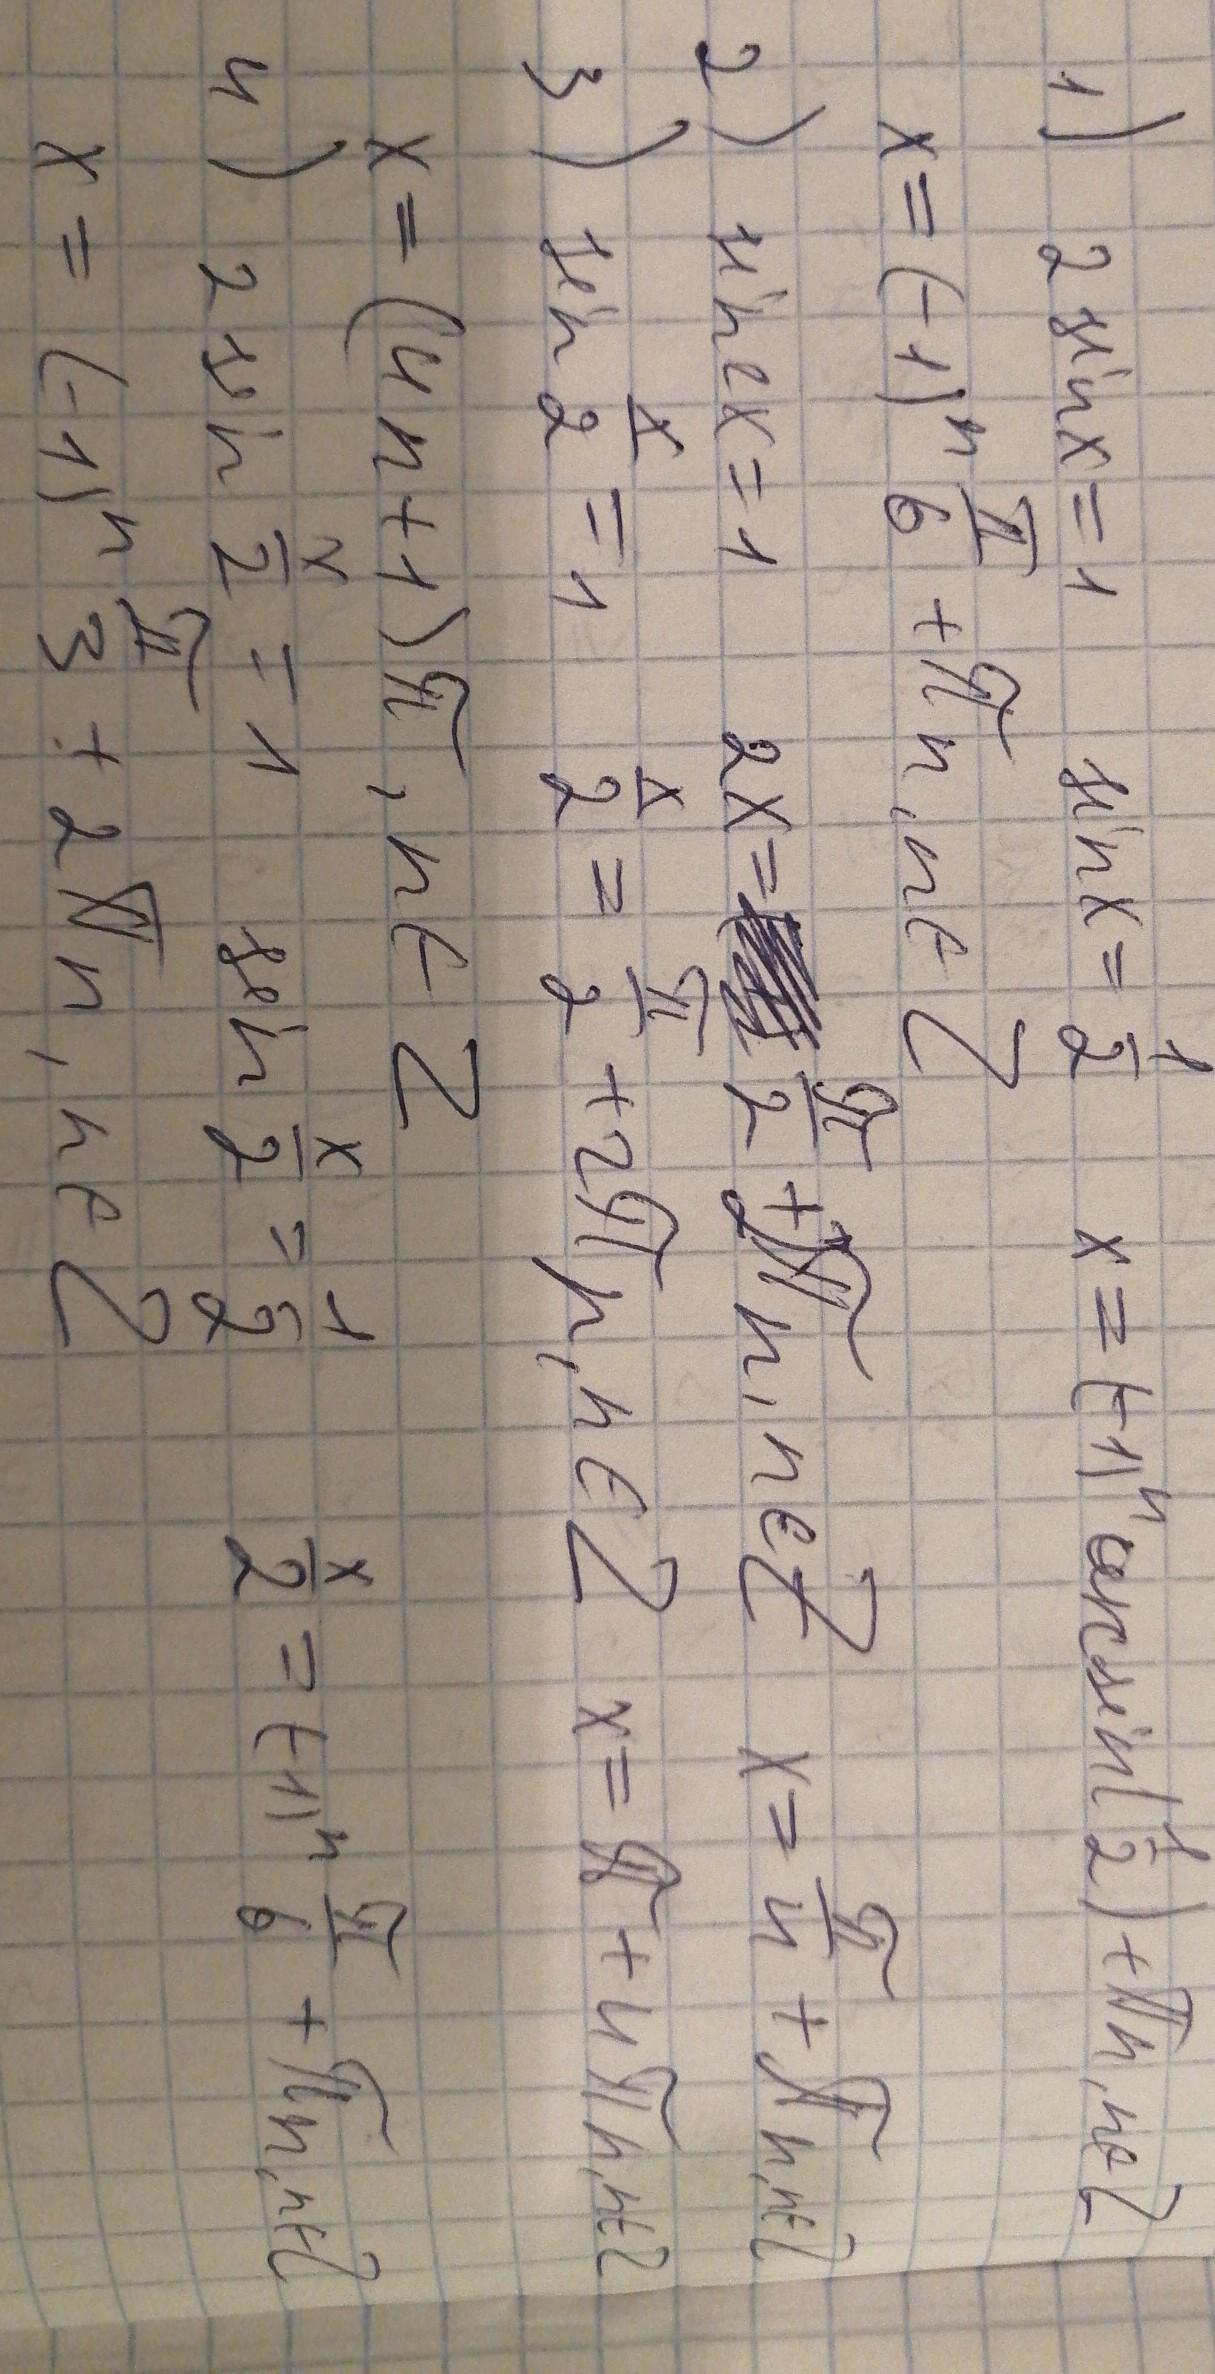 1) 2 sin x = 1   sin x = 1/2   x = (-1)ⁿ arcsin(1/2) + πn, n∈Z
x = (-1)ⁿ π/6 + πn, n∈Z
2) sin 2x = 1   2x = π/2 + 2πn, n∈Z   x = π/4 + πn, n∈Z
3) sin x/2 = 1   x/2 = π/2 + 2πn, n∈Z   x = π + 4πn, n∈Z
x = (4n+1)π, n∈Z
4) 2 sin x/2 = 1   sin x/2 = 1/2   x/2 = (-1)ⁿ π/6 + πn, n∈Z
x = (-1)ⁿ π/3 + 2πn, n∈Z